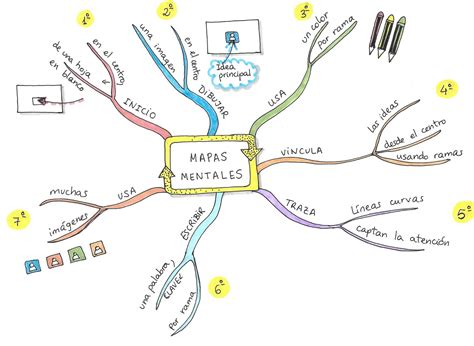 MAPAS
MENTALES
1º
INICIO
en el centro
de una hoja
en blanco
2º
DIBUJAR
una imagen
en el centro
Idea
principal
3º
USA
un color
por rama
4º
VINCULA
las ideas
desde el centro
usando ramas
5º
TRAZA
líneas curvas
captan la atención
6º
ESCRIBIR
una palabra
CLAVE
por rama
7º
USA
muchas
imágenes